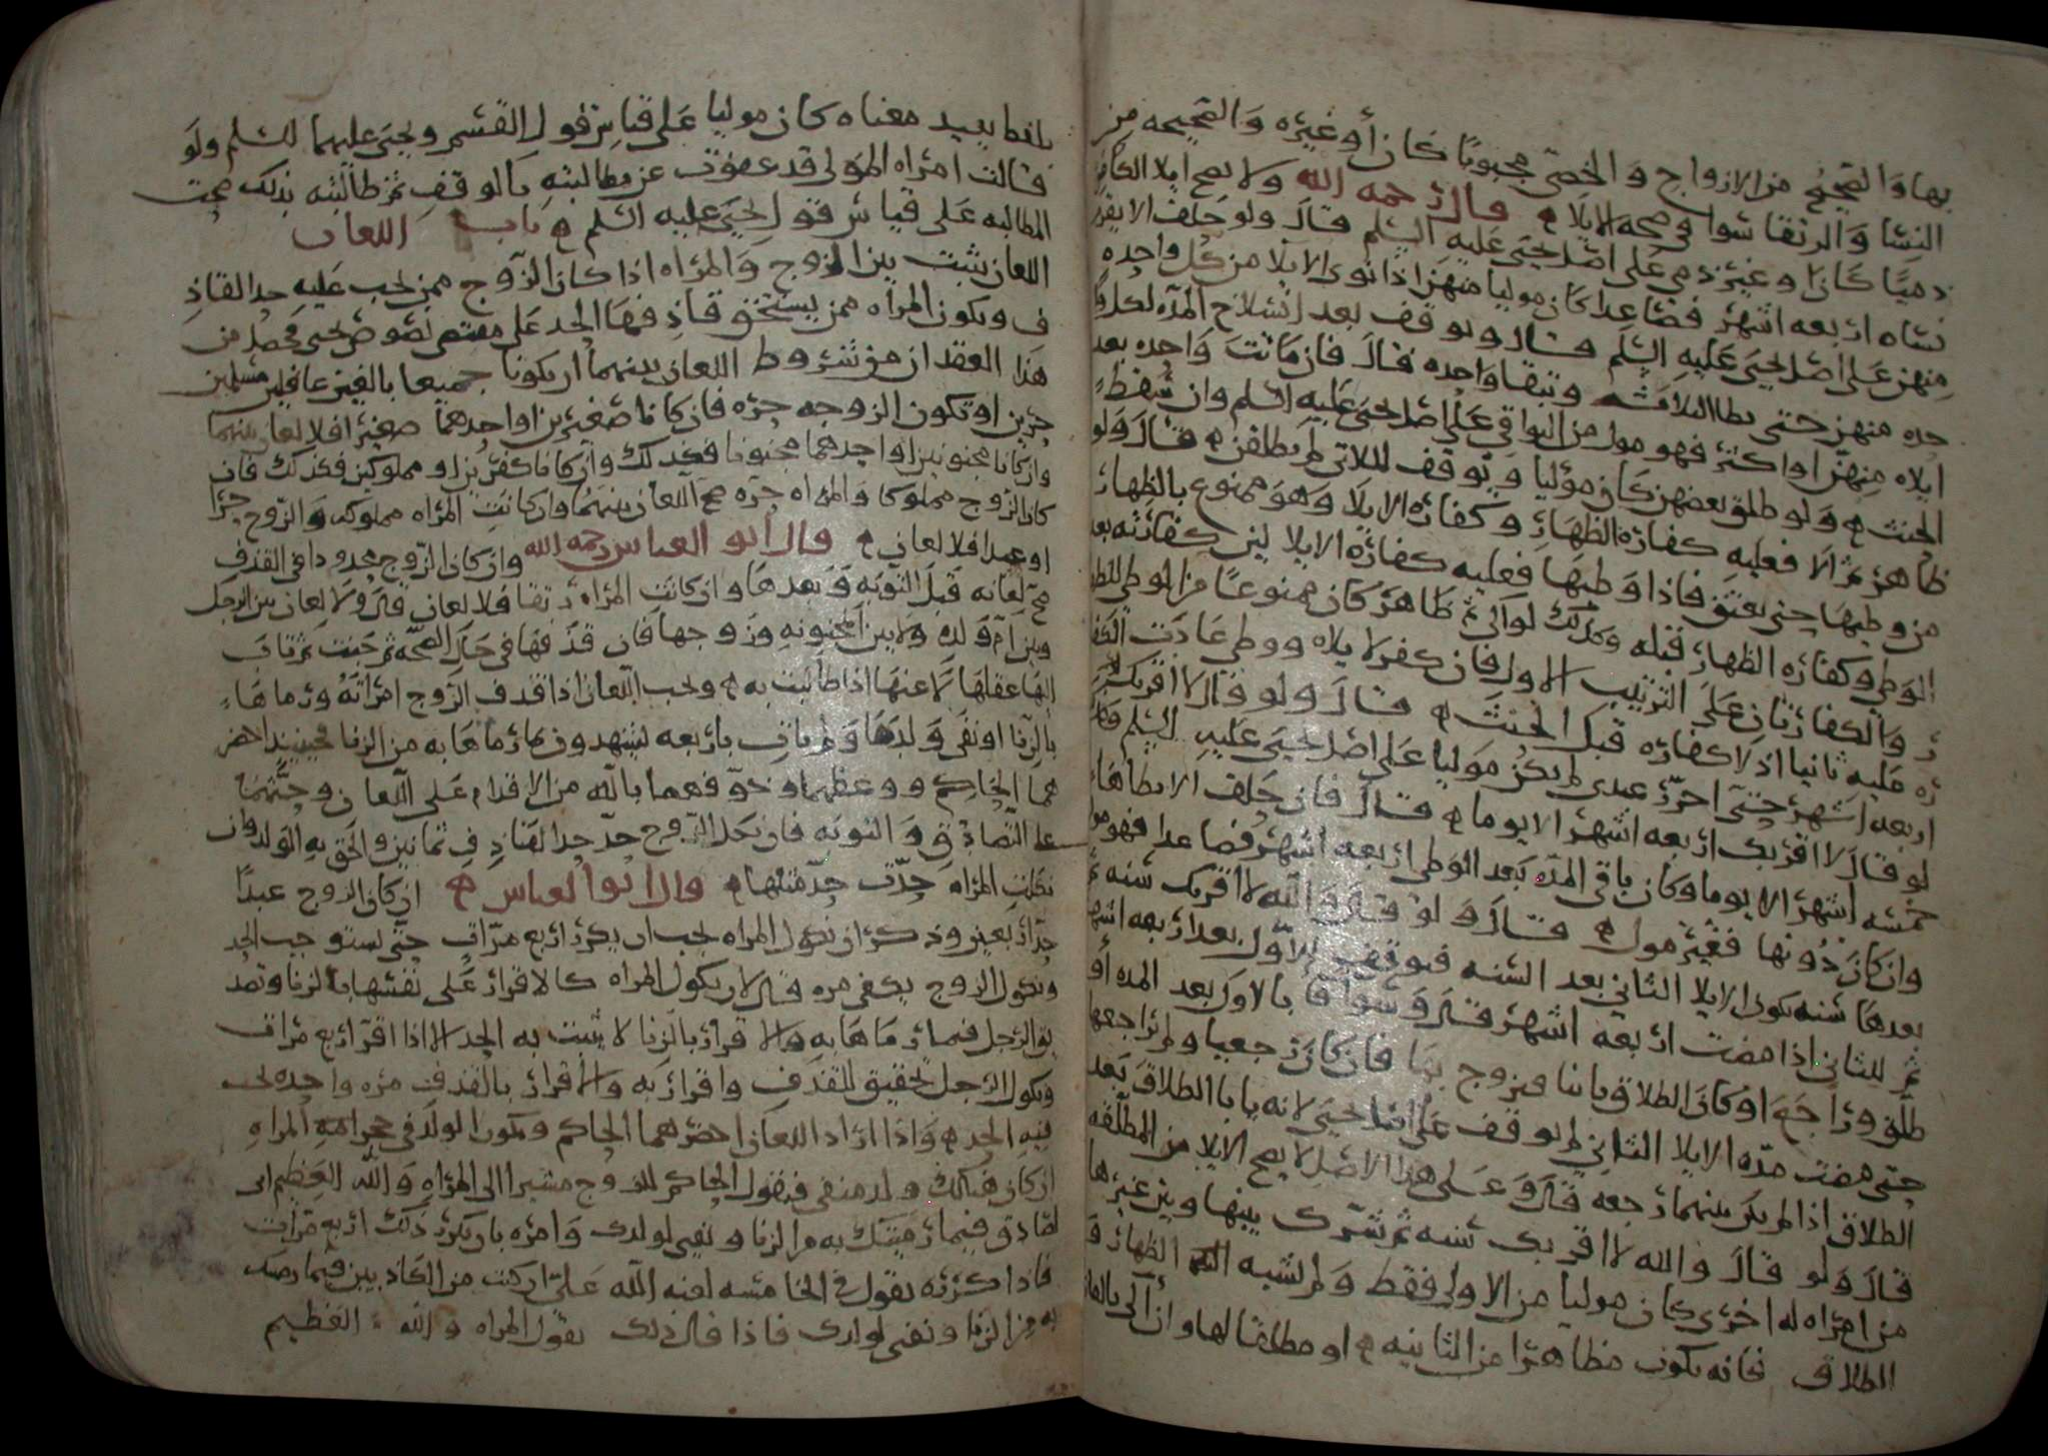 بها والصحيح من الازواج والخصي مجبوبا كان أو غيره والصحيحه من
النسا والرتقا سوا في صحه الايلا ه قال رحمه الله ولا يصح ايلا الكافر
ذميا كان او غير ذمي على اصل يحيى عليه السلم قال ولو حلف الا يقرب
نساه اربعه اشهر فصاعدا كان موليا منهن اذا نوى الايلا من كل واحده
منهن على اصل يحيى عليه السلم قال ويوقف بعد انسلاخ المده لكل وا
حده منهن حتى يطا الثلاثه وتبقا واحده قال فان ماتت واحده بعد
ايلاه منهن او اكثر فهو مول من البواقي على اصل يحيى عليه السلم وان سقط
الحنث ه ولو طلق بعضهن كان موليا ويوقف للاتي لم يطلقن ه قال ولو
ظاهر ثم الا فعليه كفاره الظهار وكفاره الايلا وهو ممنوع بالظهار
من وطيها حتى يعتق فاذا وطيها فعليه كفاره الايلا ليس كفارته بعد
الوطي وكفاره الظهار قبله وكذلك لو الى ثم ظاهر كان ممنوعا من الوطي للظها
ر والكفارتان على الترتيب الاول فان كفر لايلاه ووطي عادت الكفا
ره عليه ثانيا اذ لا كفاره قبل الحنث ه قال ولو قال لا اقربك
اربعه اشهر حتى احرر عبدي لم يكن موليا على اصل يحيى عليه السلم
لو قال لا اقربك اربعه اشهر الا يوما ه قال فان حلف الا يطاها
خمسه اشهر الا يوما وكان باقي المده بعد الوطي اربعه اشهر فصاعدا فهو مول
وان كان دونها فغير مول ه قال ولو قال والله لا اقربك سنه ثم
بعدها سنه كون الايلا الثاني بعد السنه فيوقف للاول بعد اربعه اشهر
ثم للثاني اذا مضت اربعه اشهر قال وسوا فا بالاول بعد المده أو
طلق وراجع او كان الطلاق باينا فتزوج بها فان كان رجعيا ولم يراجعها
حتى مضت مده الايلا الثاني لم يوقف على اصل يحيى لانه يابا الطلاق بعد
الطلاق اذا لم يكن بينهما رجعه قال وعلى هذا الاصل لا يصح الايلا من المطلقه
قال ولو قال والله لا اقربك سنه ثم شرك بينها وبين غيرها
من امراه له اخرى كان موليا من الاولى فقط ولم يشبه الظهار و
الطلاق فانه يكون مظاهرا من الثانيه ه او مطلقا لها وان الى
بلفظ يعيد معناه كان موليا على قياس قول القسم ويحيى عليهما السلم ولو
قالت امراه المولى قد عفوت عن مطالبته بالوقف ثم طالبته بذلك صحت
المطالبه على قياس قول يحيى عليه السلم ه باب اللعان
اللعان يثبت بين الزوج والمراه اذا كان الزوج ممن يجب عليه حد القاذ
ف ويكون المراه ممن يستحق قاذفها الحد على مقتضى نصوص يحيى فحصل من
هذا العقد ان من شروط اللعان بينهما ان يكونا جميعا بالغين عاقلين مسلمين
حرين او تكون الزوجه حره فان كانا صغيرين او احدهما صغيرا فلا لعان بينهما
وان كانا مجنونين او احدهما مجنونا فكذلك وان كانا كفرين او مملوكين فكذلك فان
كان الزوج مملوكا والمراه حره صح اللعان بينهما وان كانت المراه مملوكه والزوج حرا
او عبدا فلا لعان ه قال أبو العباس رحمه الله وان كان الزوج محدودا في القذف
صح لعانه قبل التوبه وبعدها وان كانت المراه رتقا فلا لعان قال ولا لعان بين الرجل
وبين أم ولده ولا بين المجنونه وزوجها فان قذفها في حال الصحه ثم جنت ثم ثاب
اليها عقلها لاعنها اذا طالبت به ه ويجب اللعان اذا قذف الزوج امراته ورماها
بالزنا او نفى ولدها ولم يات باربعه يشهدون بما رماها به من الزنا فحينيذ احضر
هما الحاكم ووعظهما وخوفهما بالله من الاقدام على اللعان وحثهما
على التصادق والتوبه فان نكل الزوج حد حد القاذف ثمانين والحق به الولد وان
نكلت المراه حدت حد مثلها ه قال ابو العباس ه ان كان الزوج عبدا
حد اربعين وذكر ان نكول المراه يجب ان يكرر اربع مرات حتى يستوجب الحد
ونكول الزوج يكفى مره قال لان نكول المراه كالاقرار على نفسها بالزنا وتصد
يق الرجل فيما رماها به والاقرار بالزنا لا يثبت به الحد الا اذا اقر اربع مرات
ونكول الرجل تحقيق للقذف واقرار به والاقرار بالقذف مره واحده يجب
فيه الحد ه واذا اراد اللعان احضرهما الحاكم ويكون الولد في حجر امه المراه
ان كان هنالك ولد منفي فيقول الحاكم للزوج مشيرا الى المراه والله العظيم اني
لصادق فيما رميتك به من الزنا ونفيي لولدك وامره بان يكرر ذلك اربع مرات
فاذا كرره يقول في الخامسه لعنه الله علي ان كنت من الكاذبين فيما رميتك
به من الزنا ونفيي لولدك فاذا قال ذلك يقول المراه والله العظيم